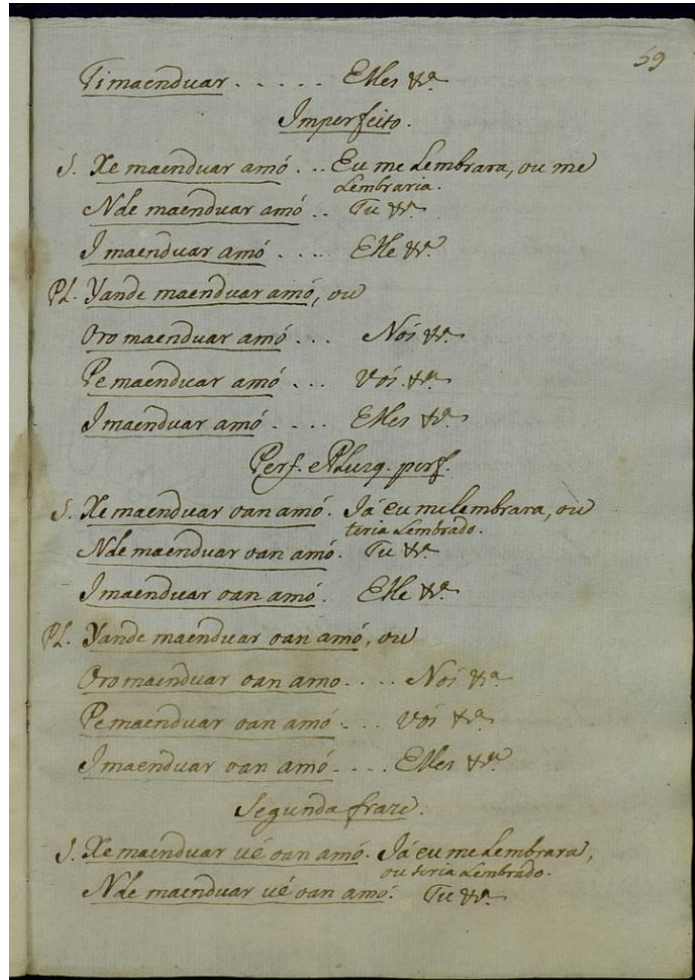 59
Timaenduar . . . . . Elles &ª
Imperfeito.
S. Xe maenduar amó . . . Eu me Lembrara, ou me
Lembraria.
Nde maenduar amó . . Tu &ª
I maenduar amó . . . . Elle &ª
PL. Yande maenduar amó, ou
Oro maenduar amó . . . Nós &ª
Pe maenduar amó . . . Vós &ª
I maenduar amó . . . . Elles &ª
Perf. e Plusq. perf.
S. Xe maenduar oan amó. Já eu me Lembrara, ou
teria Lembrado.
Nde maenduar oan amó. Tu &ª
I maenduar oan amó. Elle &ª
PL. Yande maenduar oan amó, ou
Oro maenduar oan amo. . . . Nós &ª
Pe maenduar oan amó . . . Vós &ª
I maenduar oan amó . . . . Elles &ª
Segunda fraze.
S. Xe maenduar ué oan amó. Já eu me Lembrara,
ou teria Lembrado.
Nde maenduar ué oan amó. Tu &ª